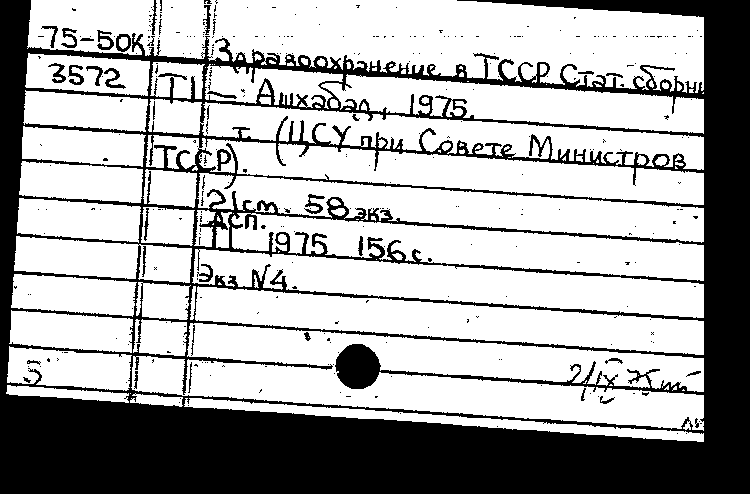 75-50К Здравоохранение в ТССР Стат. сборни
3572 Т1 — Ашхабад, 1975.
т. (ЦСУ при Совете Министров
ТССР).
21см. 58 экз.
ДСП.
П 1975. 156 с.
Экз N4.
5